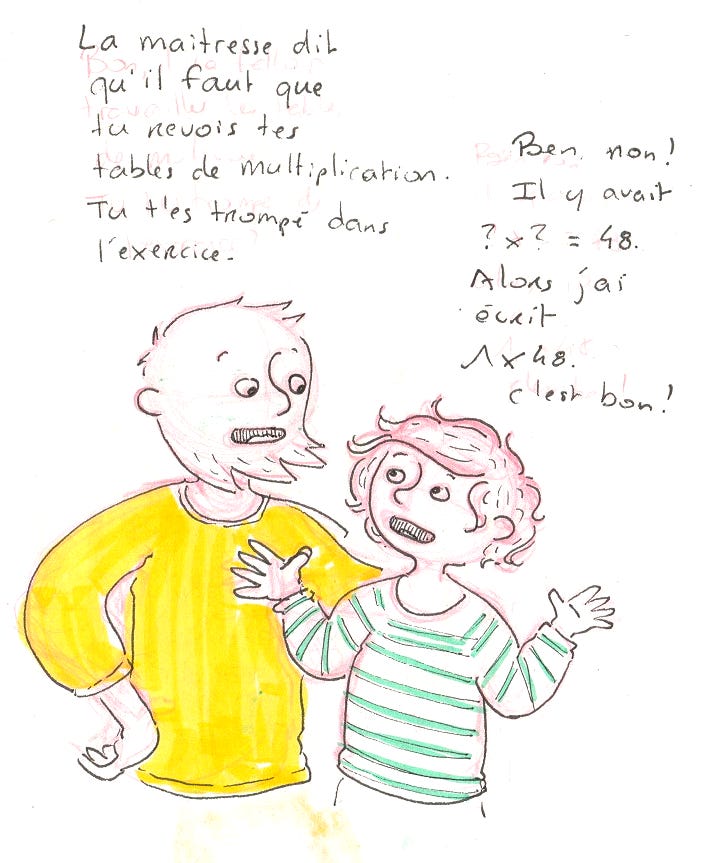 La maitresse dit
qu'il faut que
tu revois tes
tables de multiplication.
Tu t'es trompé dans
l'exercice.
Ben non!
Il y avait
? x ? = 48.
Alors j'ai
écrit
1 x 48.
c'est bon!